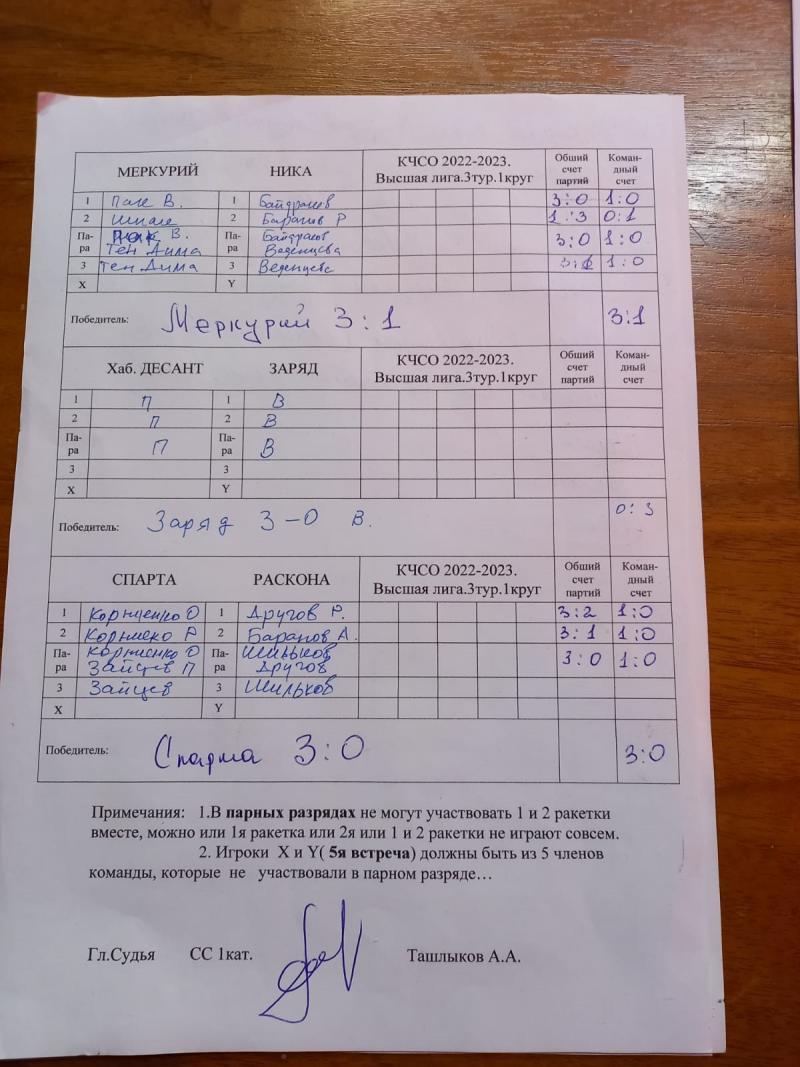 МЕРКУРИЙ НИКА КЧСО 2022-2023. Высшая лига.3тур.1круг Общий счет партий Коман- дный счет
1 Пак В. 1 3:0 1:0
2 2 Баранов Р 1:3 0:1
Па- ра В. Тен Дима Па- ра Веденцева 3:0 1:0
3 Тен Дима 3 1:0
X Y
Победитель: Меркурий 3:1 3:1
Хаб. ДЕСАНТ ЗАРЯД КЧСО 2022-2023. Высшая лига.3тур.1круг Общий счет партий Коман- дный счет
1 П 1 В
2 П 2 В
Па- ра П Па- ра В
3 3
X Y
Победитель: Заряд 3-0 В. 0:3
СПАРТА РАСКОНА КЧСО 2022-2023. Высшая лига.3тур.1круг Общий счет партий Коман- дный счет
1 Корниенко О 1 Другов Р. 3:2 1:0
2 Р 2 Баранов А. 3:1 1:0
Па- ра Корниенко О Зайцев П Па- ра Шильков Другов 3:0 1:0
3 Зайцев 3 Шильков
X Y
Победитель: Спарта 3:0 3:0
Примечания: 1.В парных разрядах не могут участвовать 1 и 2 ракетки
вместе, можно или 1я ракетка или 2я или 1 и 2 ракетки не играют совсем.
2. Игроки X и Y( 5я встреча) должны быть из 5 членов
команды, которые не участвовали в парном разряде…
Гл.Судья СС 1кат. Ташлыков А.А.